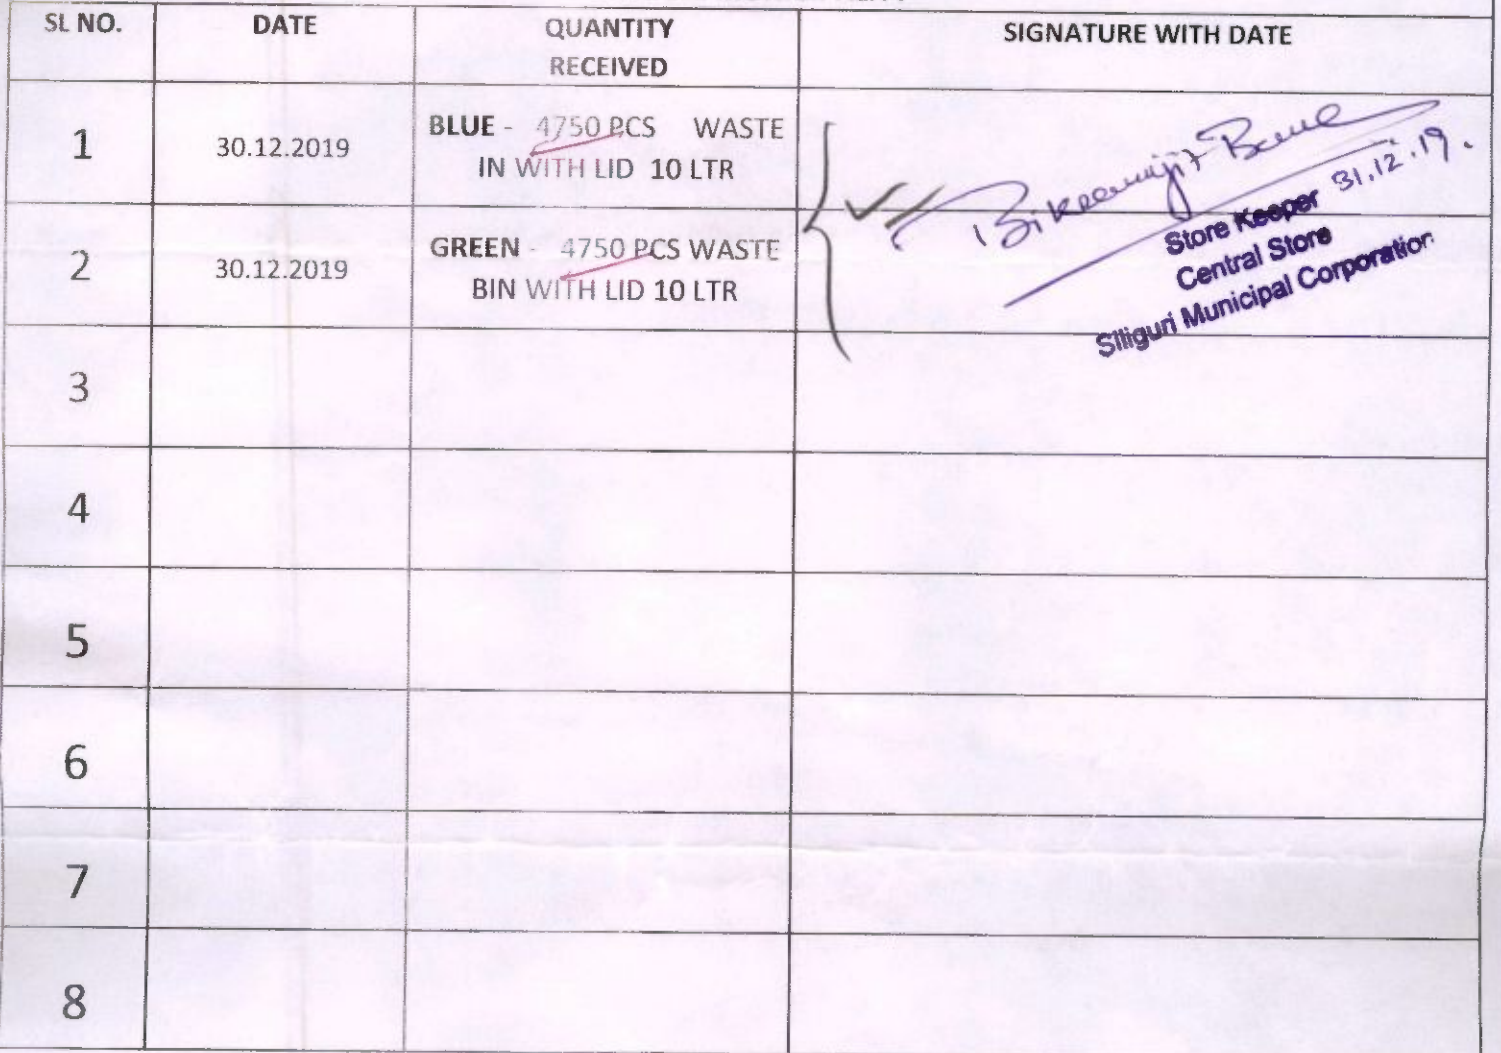 SL NO. DATE QUANTITY RECEIVED SIGNATURE WITH DATE
1 30.12.2019 BLUE - 4750 PCS WASTE
IN WITH LID 10 LTR
31.12.19.
Store Keeper
Central Store
Siliguri Municipal Corporation
2 30.12.2019 GREEN - 4750 PCS WASTE
BIN WITH LID 10 LTR
3
4
5
6
7
8